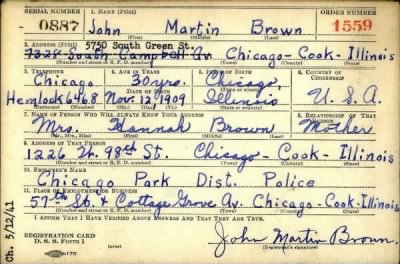 SERIAL NUMBER 1. NAME (Print) ORDER NUMBER
0887 John Martin Brown 1559
2. ADDRESS (Print) 5750 South Green St.
7328 South Campbell Av Chicago - Cook - Illinois
3. TELEPHONE 4. AGE IN YEARS 5. PLACE OF BIRTH 6. COUNTRY OF CITIZENSHIP
Chicago 30 yrs. Chicago
DATE OF BIRTH
Hemlock 6468 Nov. 12, 1909 Illinois U.S.A.
7. NAME OF PERSON WHO WILL ALWAYS KNOW YOUR ADDRESS 8. RELATIONSHIP OF THAT PERSON
Mrs. Hannah Brown Mother
9. ADDRESS OF THAT PERSON
1226 W. 98th St. Chicago - Cook - Illinois
10. EMPLOYER'S NAME
Chicago Park Dist. Police
11. PLACE OF EMPLOYMENT OR BUSINESS
57th St. & Cottage Grove Av. Chicago - Cook - Illinois
I AFFIRM THAT I HAVE VERIFIED ABOVE ANSWERS AND THAT THEY ARE TRUE.
REGISTRATION CARD
D. S. S. Form 1
John Martin Brown
(Registrant's signature)
Ch. 5/12/41